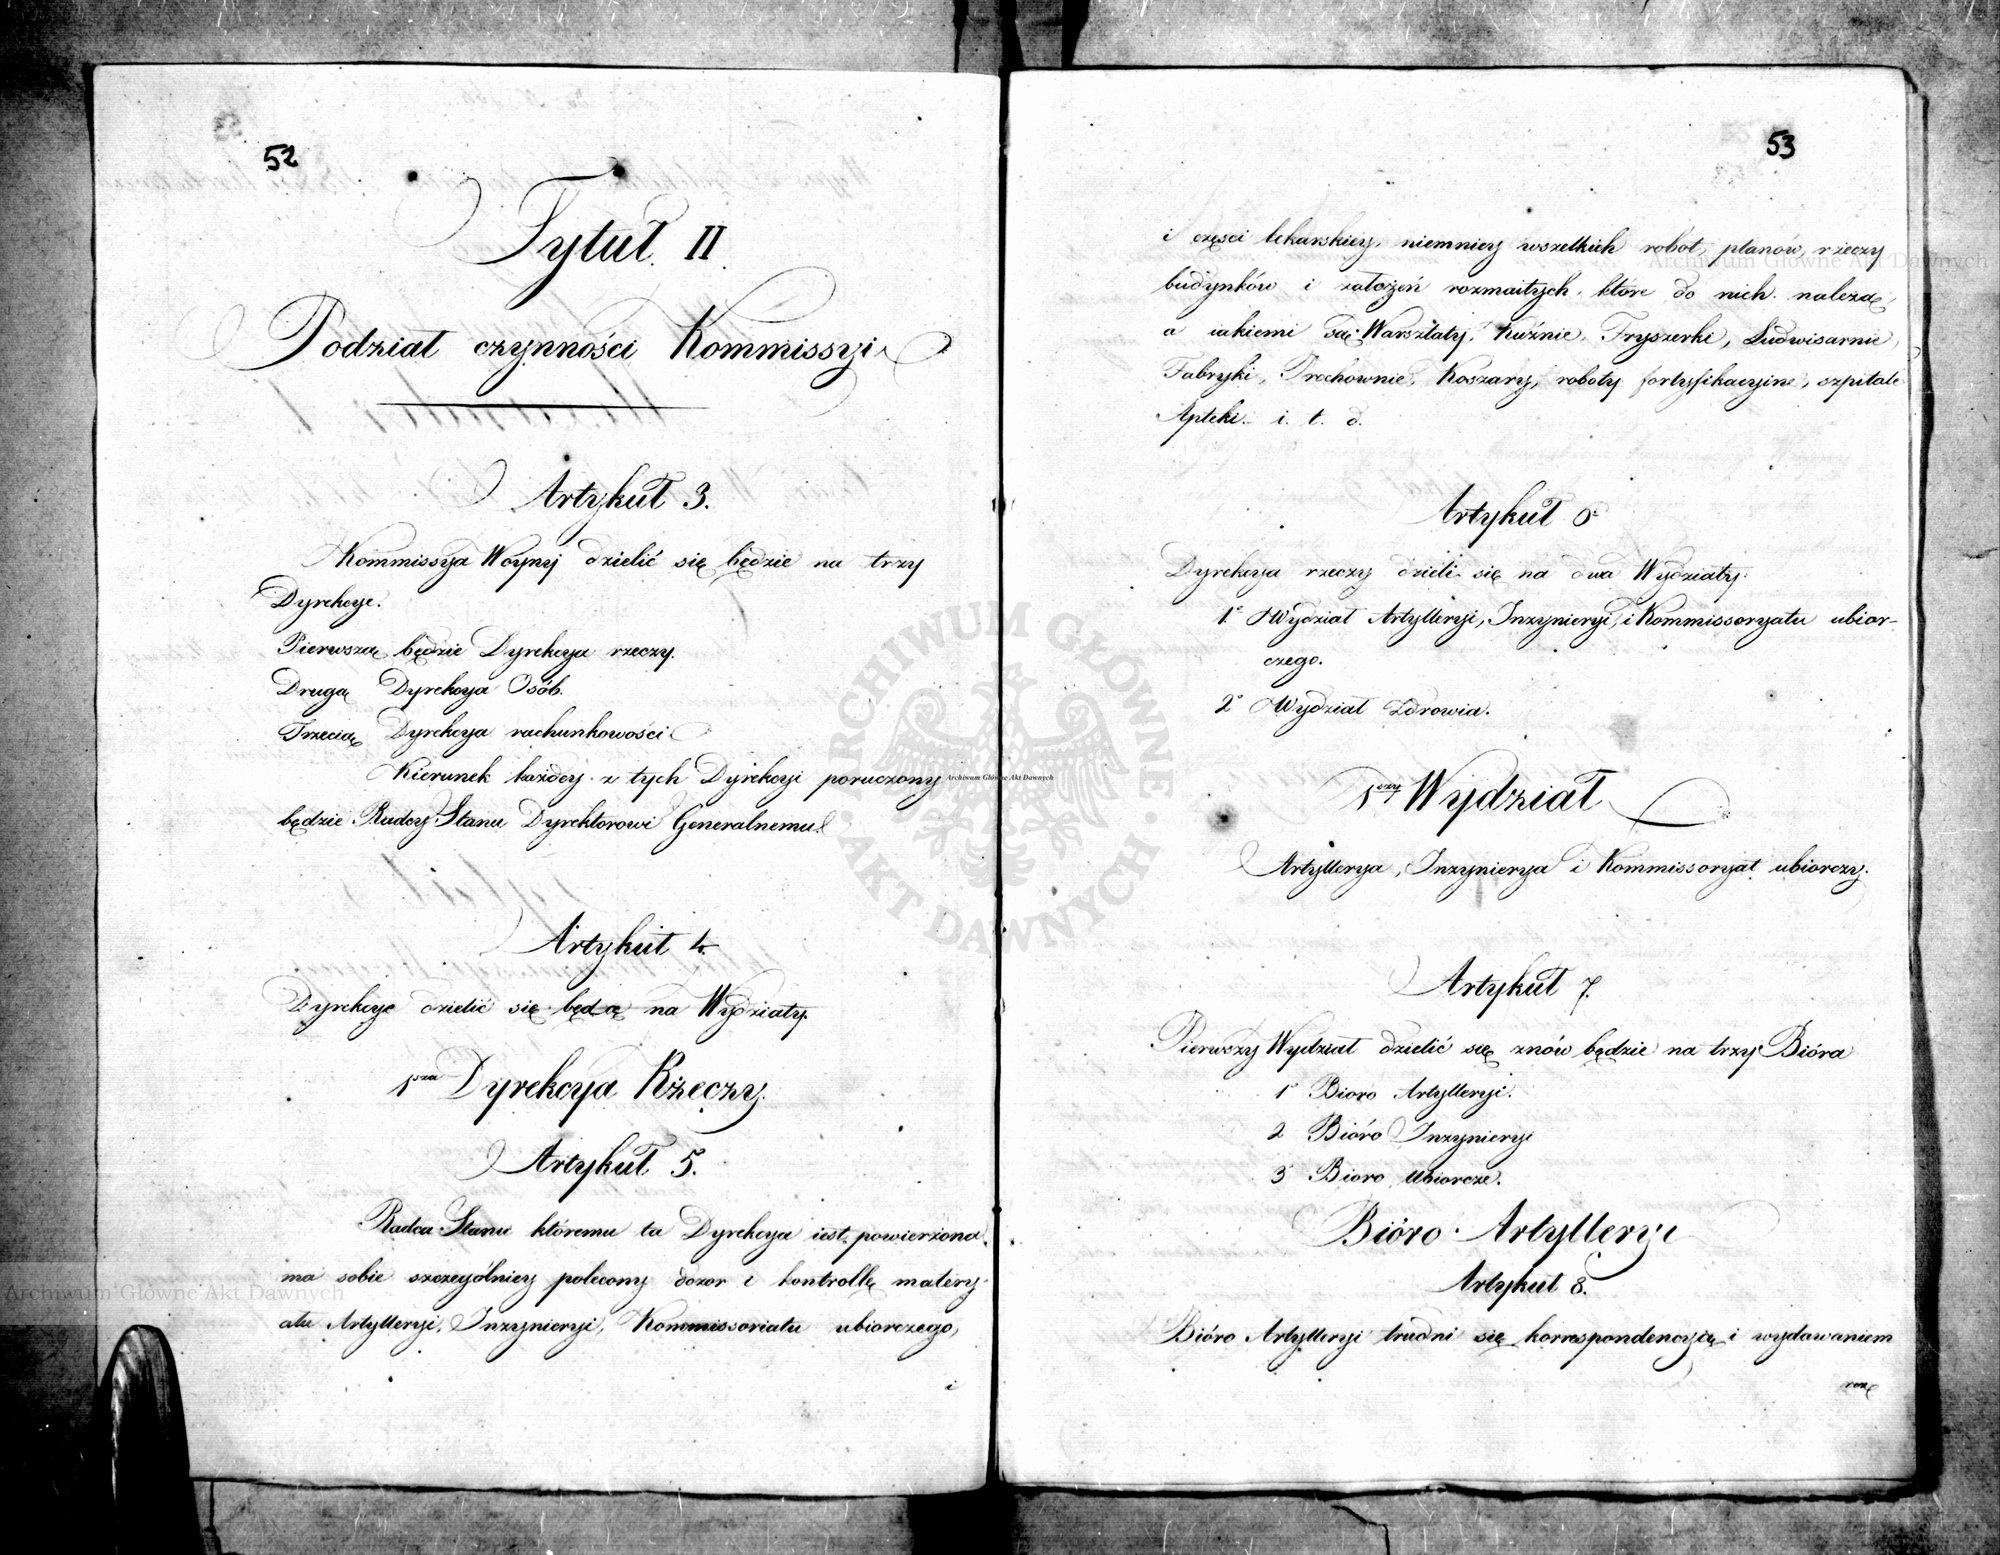 52
Tytuł II
Podział czynności Kommissyi
Artykuł 3.
Kommissya Woyny dzielić się będzie na trzy
Dyrekcye.
Pierwszą będzie Dyrekcya rzeczy.
Drugą Dyrekcya Osób.
Trzecią Dyrekcya rachunkowości
Kierunek każdey z tych Dyrekcyi poruczony
będzie Radcy Stanu Dyrektorowi Generalnemu.
Artykuł 4.
Dyrekcye dzielić się będą na Wydziały.
1sza Dyrekcya Rzeczy.
Artykuł 5.
Radca Stanu któremu ta Dyrekcya iest powierzona,
ma sobie szczególniey polecony dozor i kontrollę matery-
ału Artylleryi, Inzynieryi, Kommissoriatu ubiorczego,
i
53
i częsci lekarskiey, niemniey wszelkich robot, planów, rzeczy
budynków i założeń rozmaitych, ktore do nich należą,
a iakiemi są: Warsztaty, Kuźnie, Fryszerki, Ludwisarnie,
Fabryki, Prochownie, Koszary, roboty fortyfikacyine, szpitale
Apteki. i. t. d.
Artykuł 6
Dyrekcya rzeczy dzieli się na dwa Wydziały.
1° Wydział Artylleryi, Inzynieryi, i Kommissoryatu ubior-
czego.
2° Wydział Zdrowia.
1szy Wydział
Artyllerya, Inzynierya i Kommissoryat ubiorczy.
Artykuł 7.
Pierwszy Wydział dzielić się znów będzie na trzy Bióra
1° Bioro Artylleryi.
2 Bióro Inzynieryi
3° Bioro Ubiorcze.
Bióro Artylleryi
Artykuł 8.
Bióro Artylleryi trudni się korrespondencyią i wydawaniem
ARCHIWUM GŁÓWNE AKT DAWNYCH
Archiwum Główne Akt Dawnych
Archiwum Główne Akt Dawnych
Archiwum Główne Akt Dawnych